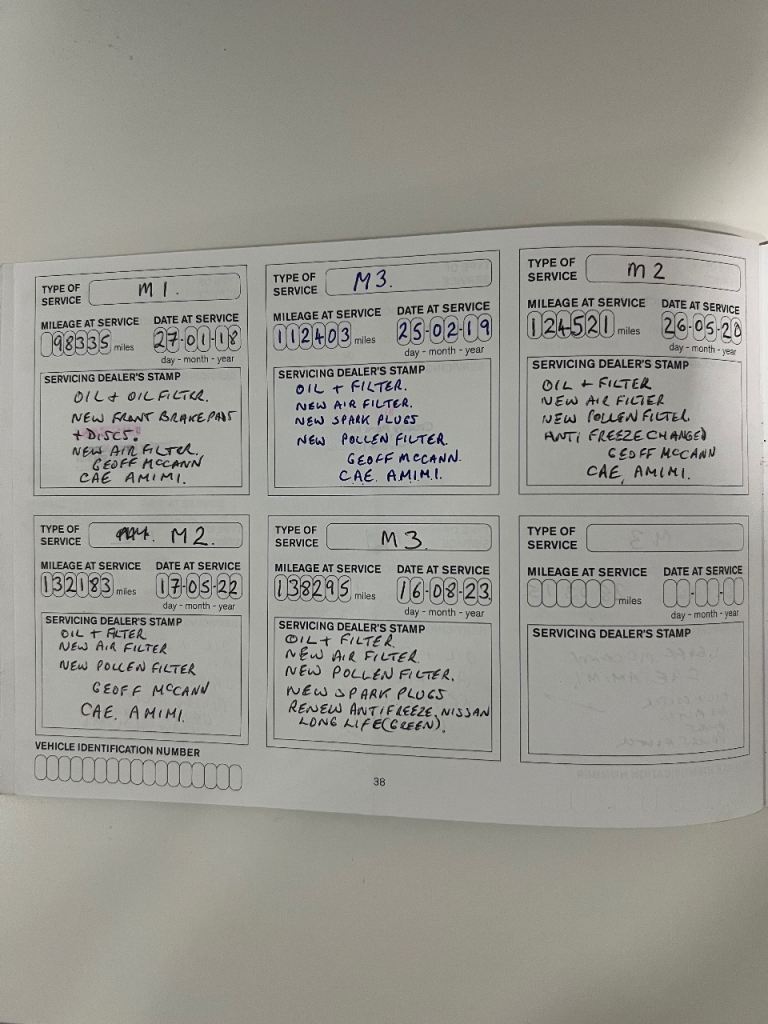 TYPE OF SERVICE M1.
MILEAGE AT SERVICE DATE AT SERVICE
98335 miles 27-01-18
day - month - year
SERVICING DEALER'S STAMP
OIL + OIL FILTER.
NEW FRONT BRAKE PADS
+ DISCS.
NEW AIR FILTER,
GEOFF MCCANN
CAE AMIMI.
TYPE OF SERVICE M3.
MILEAGE AT SERVICE DATE AT SERVICE
112403 miles 25-02-19
day - month - year
SERVICING DEALER'S STAMP
OIL + FILTER.
NEW AIR FILTER.
NEW SPARK PLUGS
NEW POLLEN FILTER.
GEOFF MCCANN.
CAE. AMIMI.
TYPE OF SERVICE M2
MILEAGE AT SERVICE DATE AT SERVICE
124521 miles 26-05-20
day - month - year
SERVICING DEALER'S STAMP
OIL + FILTER
NEW AIR FILTER
NEW POLLEN FILTER.
ANTI FREEZE CHANGED
GEOFF MCCANN
CAE, AMIMI.
TYPE OF SERVICE M2.
MILEAGE AT SERVICE DATE AT SERVICE
132183 miles 17-05-22
day - month - year
SERVICING DEALER'S STAMP
OIL + FILTER
NEW AIR FILTER
NEW POLLEN FILTER
GEOFF MCCANN
CAE. AMIMI.
TYPE OF SERVICE M3.
MILEAGE AT SERVICE DATE AT SERVICE
138295 miles 16-08-23
day - month - year
SERVICING DEALER'S STAMP
OIL + FILTER
NEW AIR FILTER
NEW POLLEN FILTER.
NEW SPARK PLUGS
RENEW ANTIFREEZE, NISSAN
LONG LIFE (GREEN).
TYPE OF SERVICE
MILEAGE AT SERVICE DATE AT SERVICE
miles
day - month - year
SERVICING DEALER'S STAMP
VEHICLE IDENTIFICATION NUMBER
38